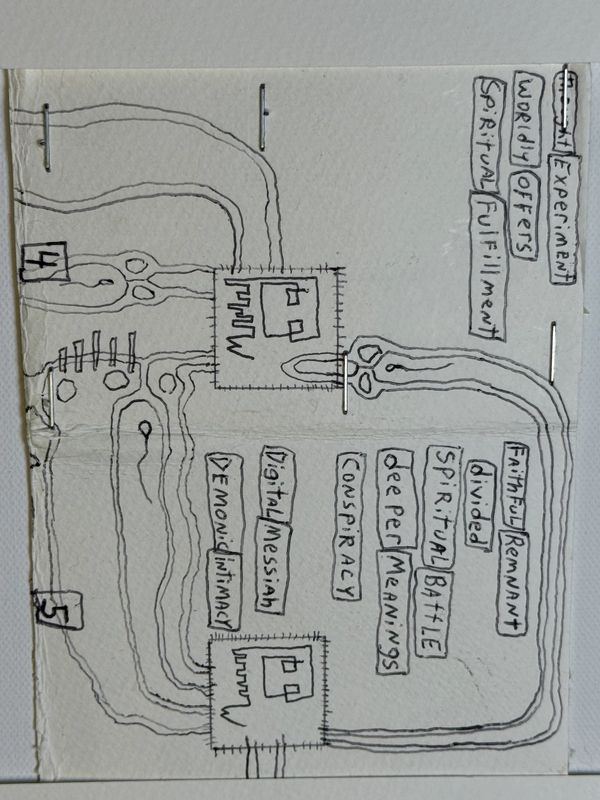 thought ExpERiMENT
WORldly OffERs
SpiRitUAL FULfillMENT
FAithFUL REMNANT
divided
SpiRitUAL BAttLE
deeper MEANiNgs
CONSpiRACY
DigitAL MESSiAh
DEMONiC iNtiMACY
4
5